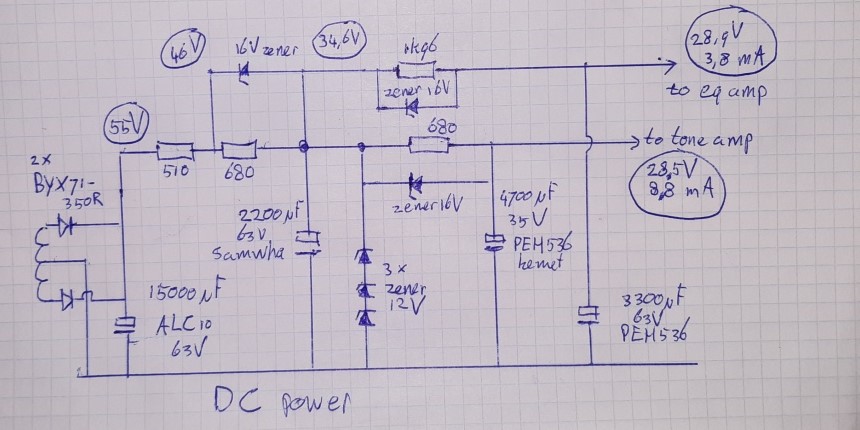 46V
16V zener
34,6V
1k96
28,9V
3,8 mA
zener 16V
to eq amp
55V
680
to tone amp
510
680
28,5V
8,8 mA
2x
BYX71-
350R
zener 16V
4700µF
35V
PEH536
kemet
2200µF
63V
Samwha
3x
zener
12V
15000µF
ALC10
63V
3300µF
63V
PEH536
DC power